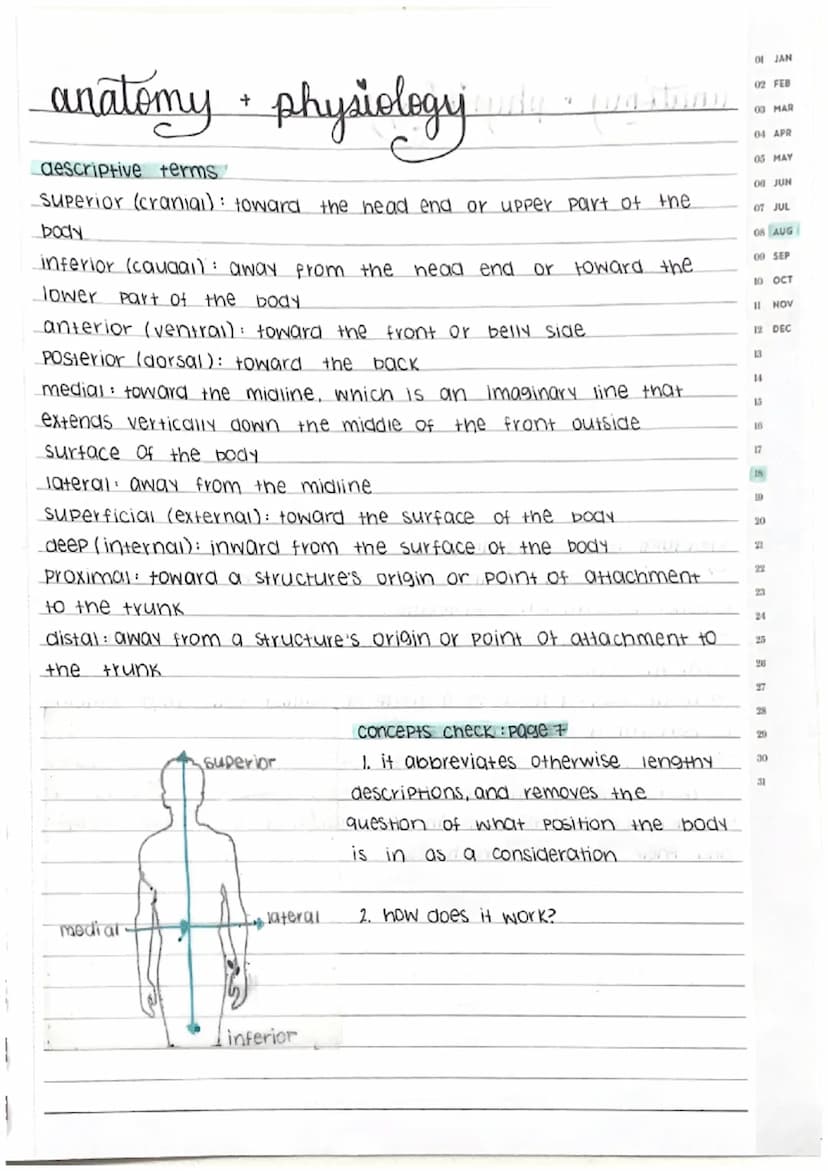 anatomy + physiology
descriptive terms
superior (cranial): toward the head end or upper part of the
body
inferior (caudal): away from the head end or toward the
lower part of the body
anterior (ventral): toward the front or belly side
posterior (dorsal): toward the back
medial: toward the midline, which is an imaginary line that
extends vertically down the middle of the front outside
surface of the body
lateral: away from the midline
superficial (external): toward the surface of the body
deep (internal): inward from the surface of the body
proximal: toward a structure's origin or point of attachment
to the trunk
distal: away from a structure's origin or point of attachment to
the trunk
superior
medial
lateral
inferior
concepts check: page 7
1. it abbreviates otherwise lengthy
descriptions, and removes the
question of what position the body
is in as a consideration
2. how does it work?
01 JAN
02 FEB
03 MAR
04 APR
05 MAY
06 JUN
07 JUL
08 AUG
09 SEP
10 OCT
11 NOV
12 DEC
13
14
15
16
17
18
19
20
21
22
23
24
25
26
27
28
29
30
31